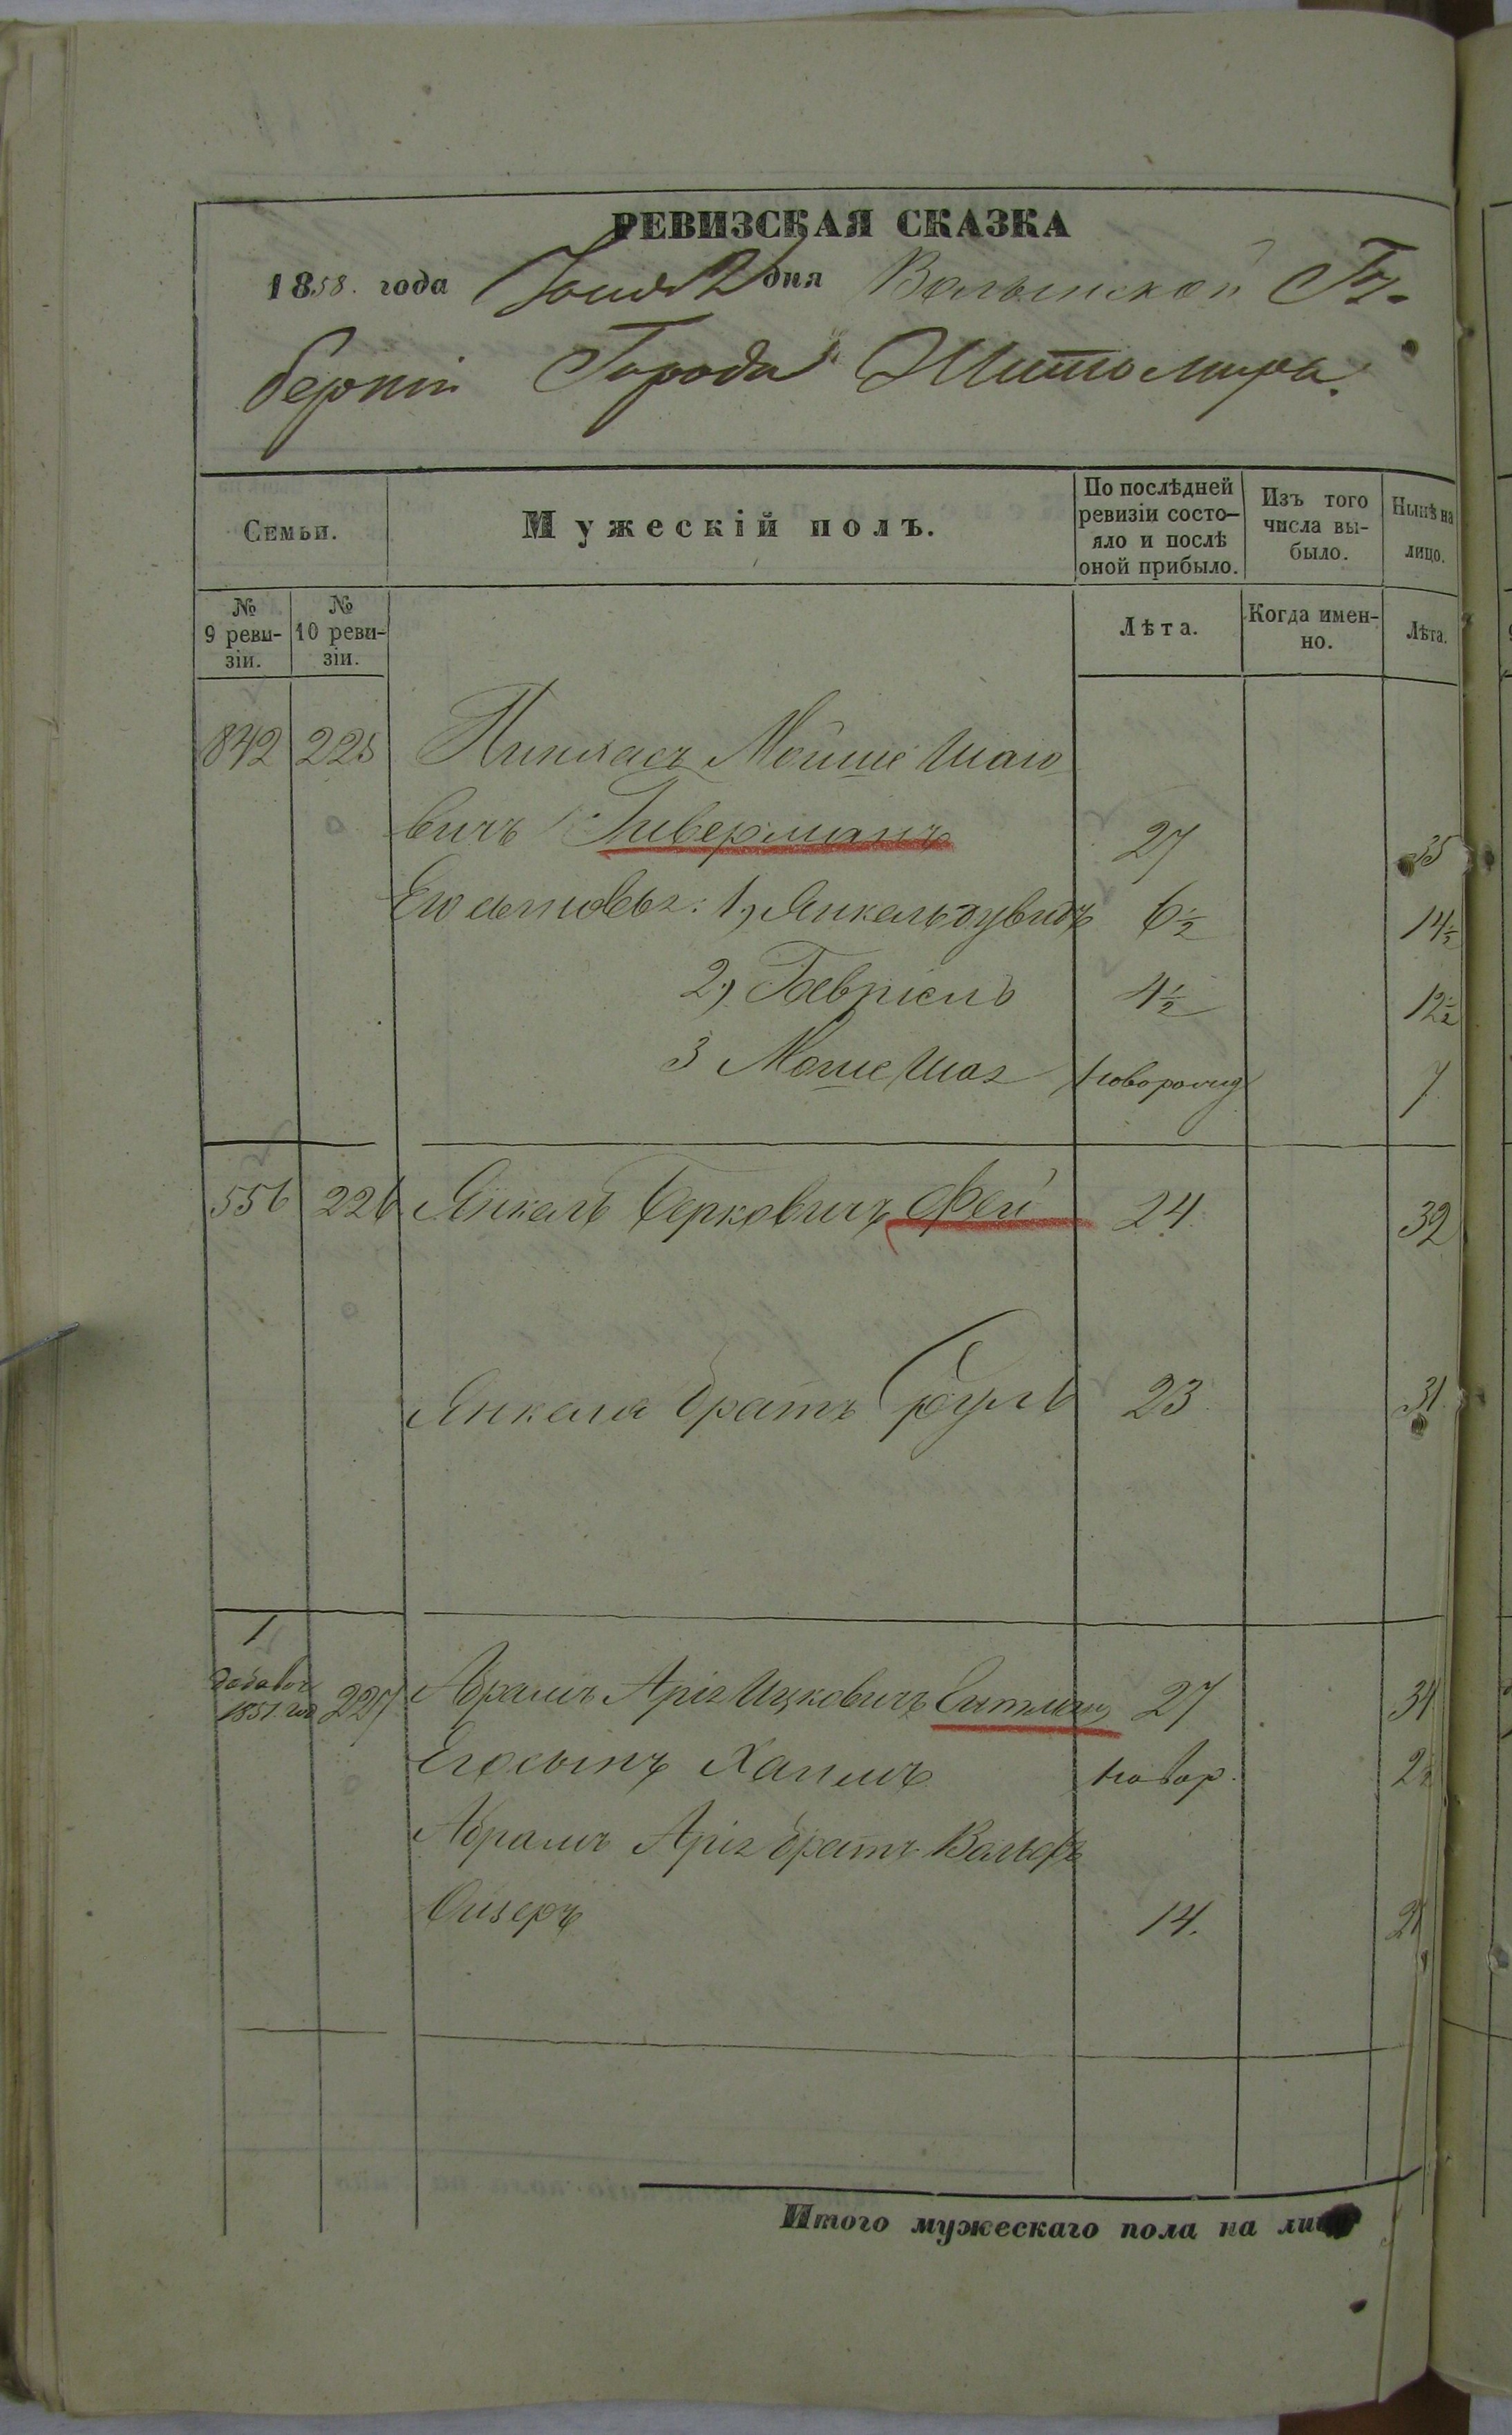 РЕВИЗСКАЯ СКАЗКА
1858. года Іюня 2 дня Волынской Гу-
берніи Города Житомира.
Семьи.
Мужескій полъ.
По послѣдней ревизіи состо-яло и послѣ оной прибыло.
Изъ того числа вы-было.
Нынѣ на лицо.
№ 9 реви-зіи.
№ 10 реви-зіи.
Лѣта.
Когда имен-но.
Лѣта.
842 225 Пинхасъ Мойше Шаю
вичъ Гиверманъ 27 35
Его сыновья: 1, Янкельдувидъ 6½ 14½
2, Гавріель 4½ 12½
3 Моше Шая новорожд 7
556 226 Янкель Берковичъ Фей 24 32
Янкеля братъ Сруль 23 31
1
добавоч
1851 год 227 Абрамъ Арія Ицковичъ 27 34
Его сынъ Хаимъ новор. 2½
Абрамъ Арія братъ Вольфъ
Оизеръ 14. 21
Итого мужескаго пола на лицо